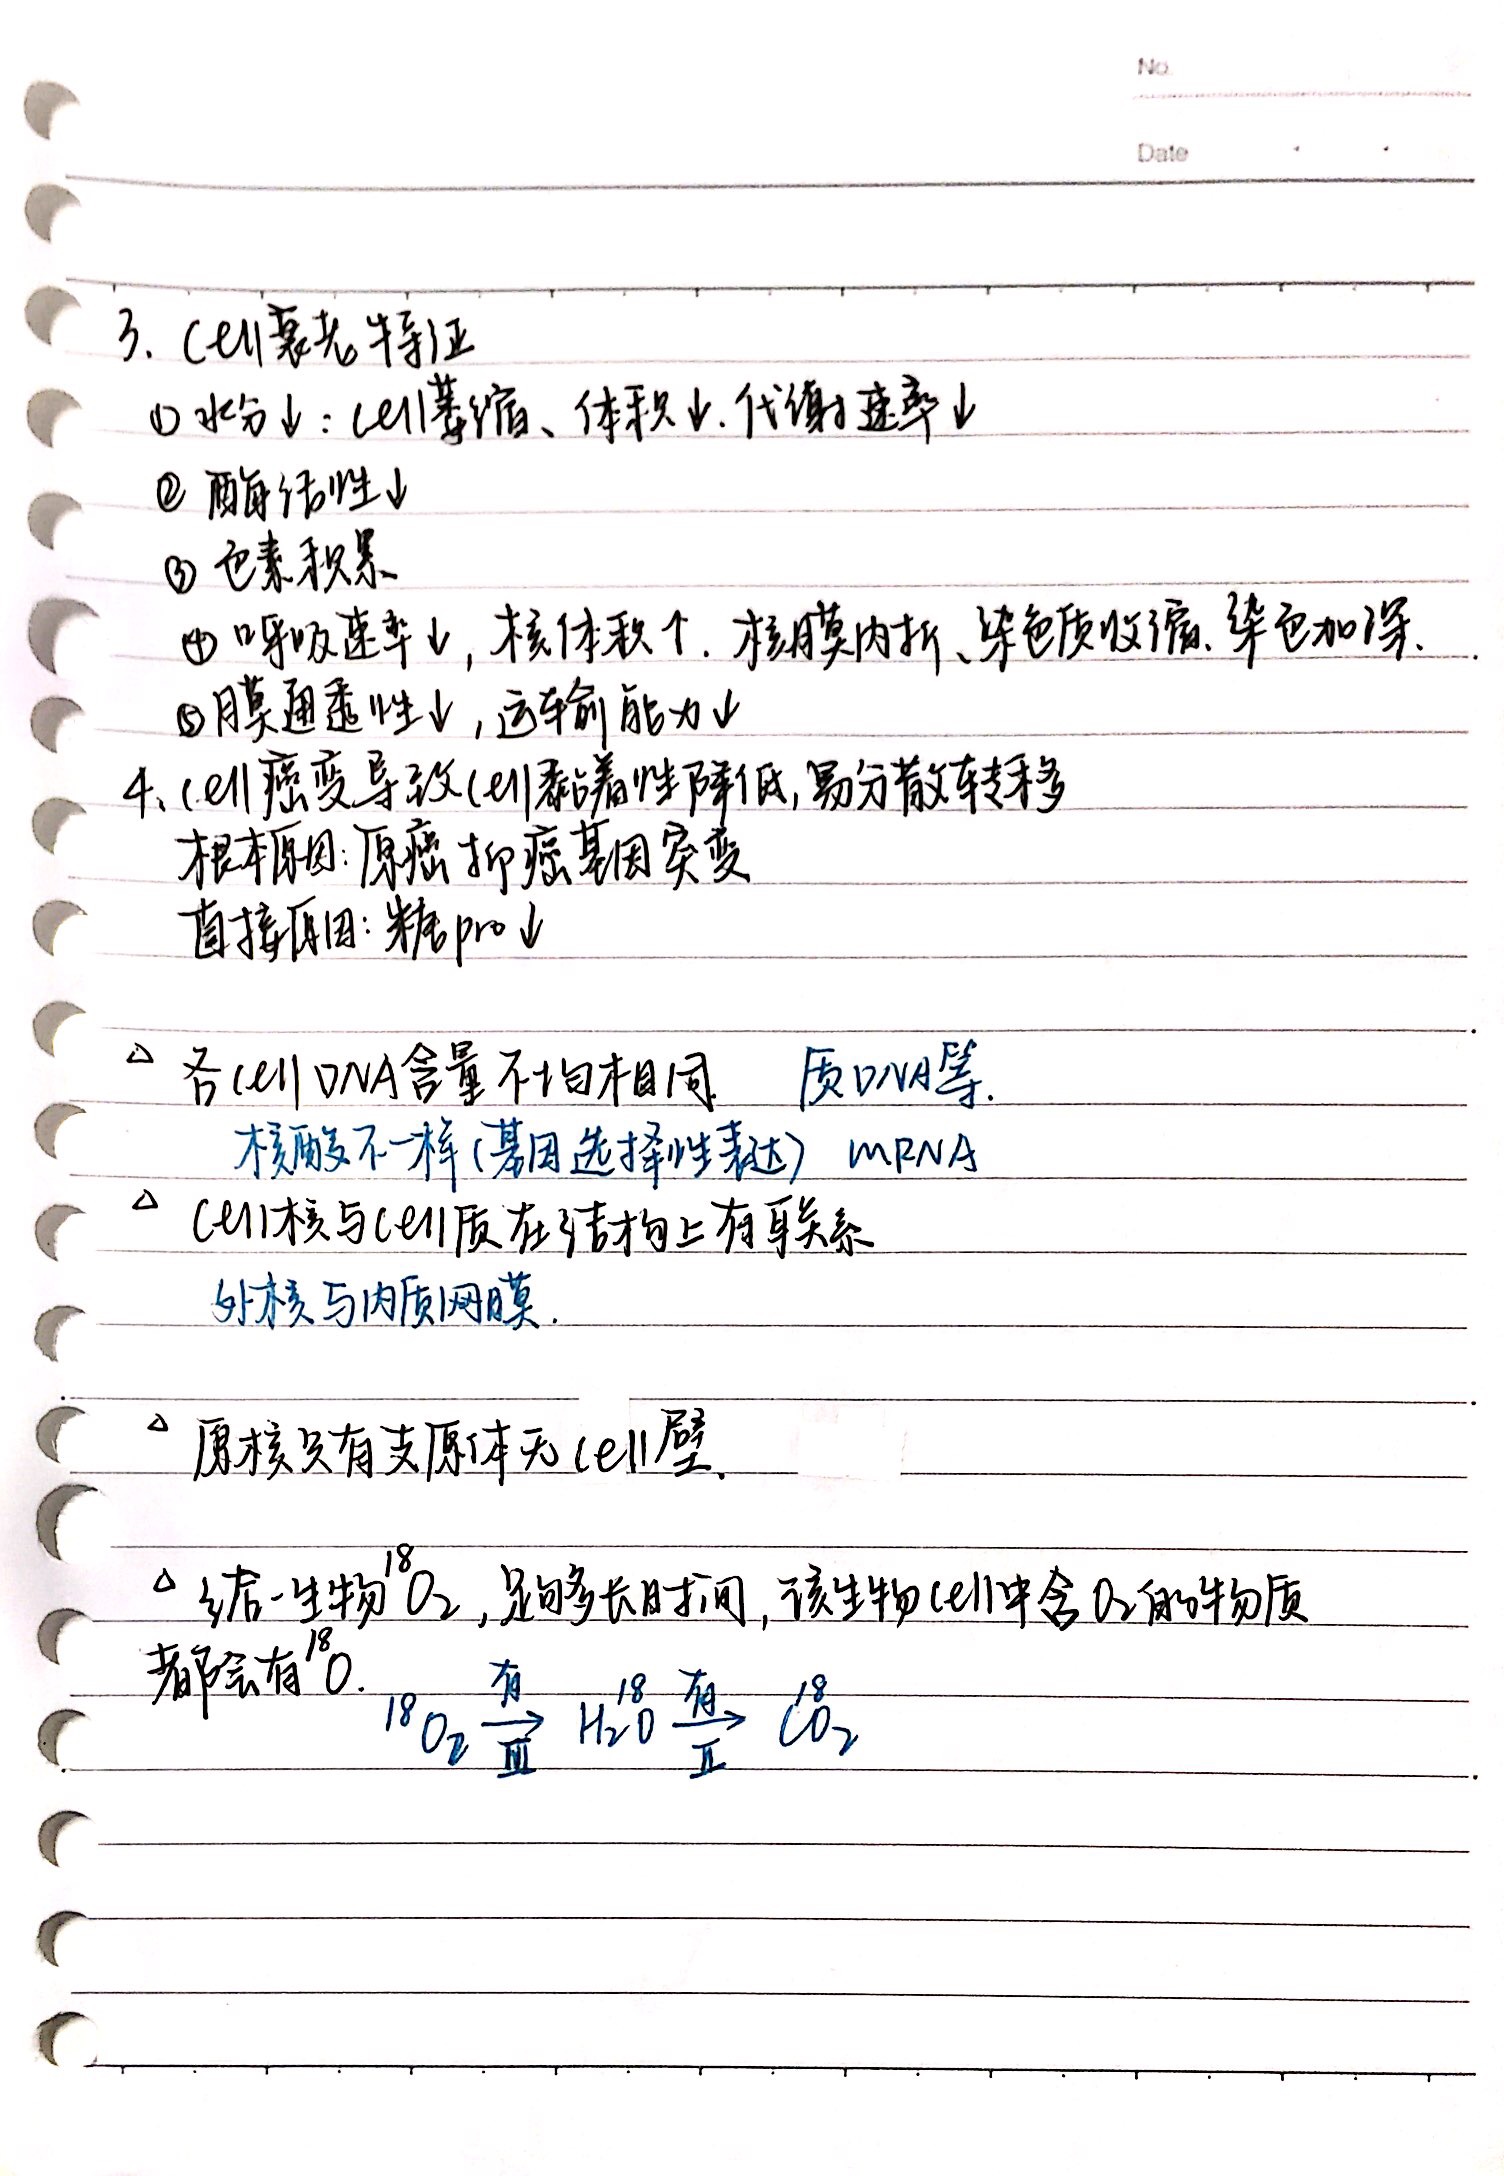 No.
Date
3、cell衰老特征
① 水分↓：cell萎缩、体积↓.代谢速率↓
② 酶活性↓
③ 色素积累
④ 呼吸速率↓，核体积↑.核膜内折、染色质收缩、染色加深.
⑤膜通透性↓，运输能力↓
4、cell癌变导致cell黏着性降低，易分散转移
根本原因：原癌抑癌基因突变
直接原因：糖pro↓
△ 各cell DNA含量不均相同 质DNA等.
核酸不一样（基因选择性表达） mRNA
△ cell核与cell质在结构上有联系
外核与内质网膜.
△ 原核只有支原体无cell壁.
△ 给一生物¹⁸O₂，足够多长时间，该生物cell中含O₂的物质
都会有¹⁸O.
¹⁸O₂ —有/Ⅲ→ H₂¹⁸O —有/Ⅱ→ C¹⁸O₂